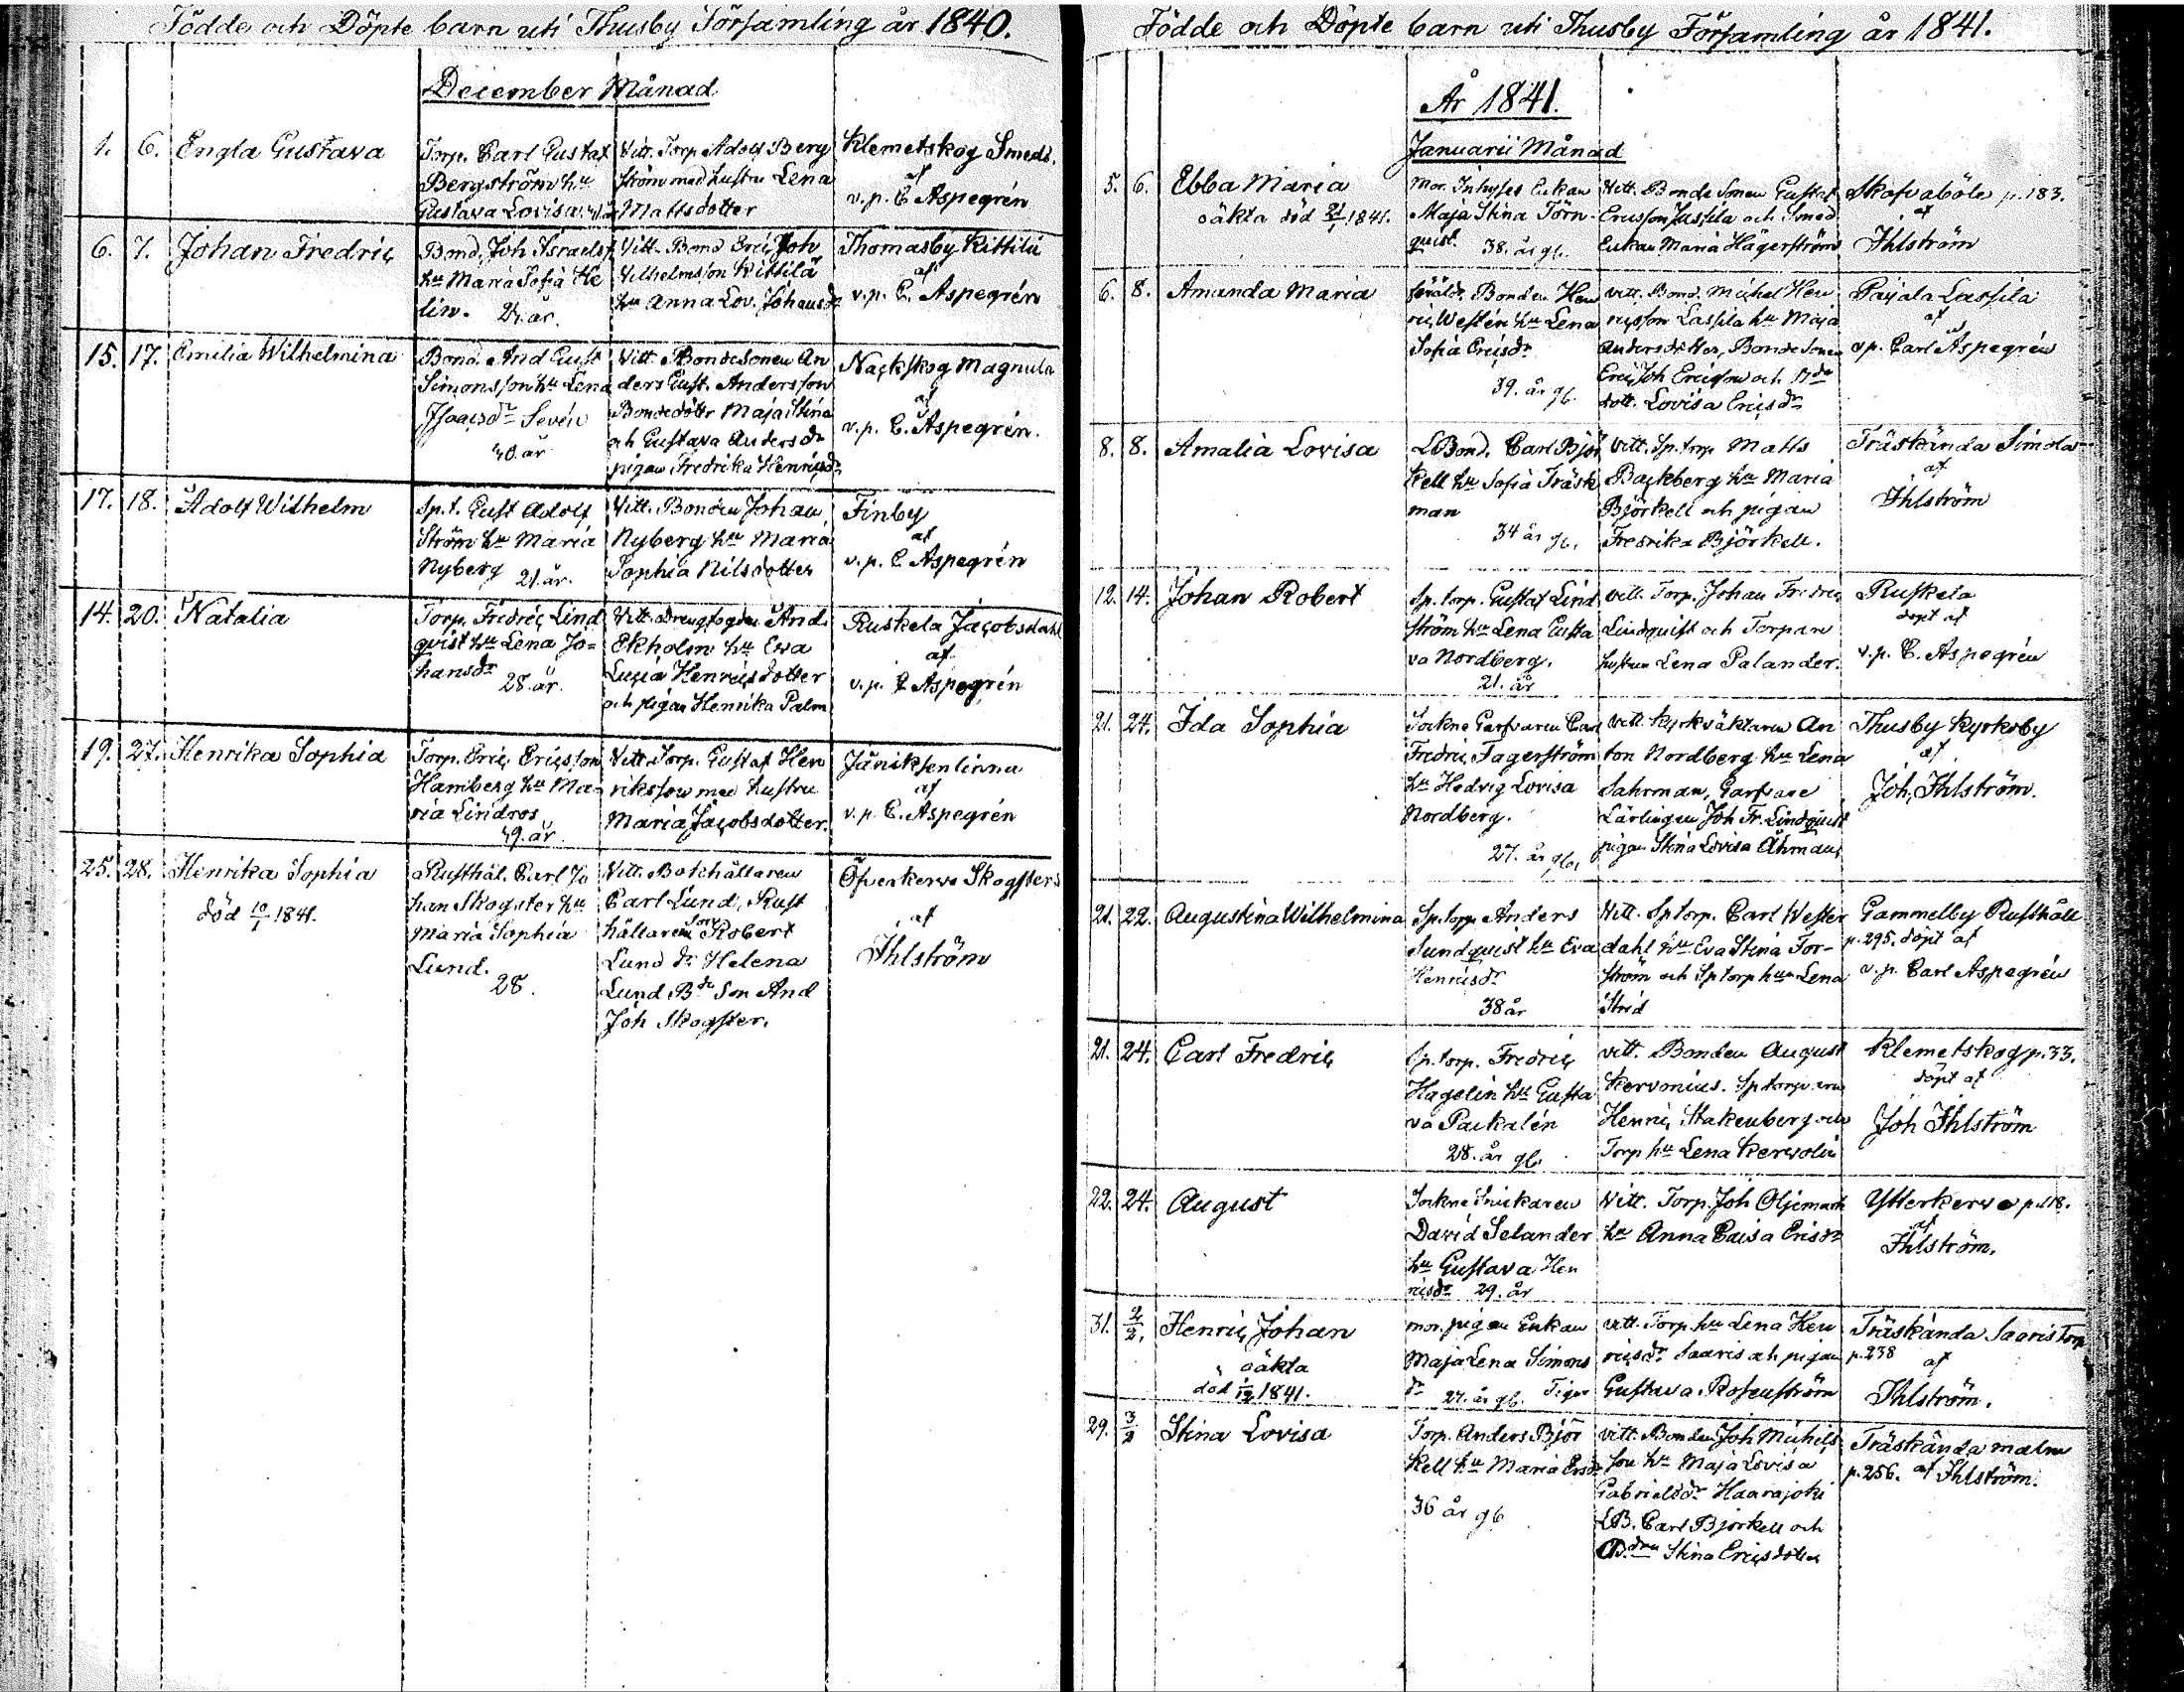 Födde och Döpte barn uti Thusby Församling år 1840.
December Månad
1. 6. Engla Gustava
Torp. Carl Gustaf
Bergström hu
Gustava Lovisa
Vitt. Torp Adolf Berg
ström med hustru Lena
Mattsdotter
Klemetskog Smeds.
af
v.p. C Aspegrén
6. 7. Johan Fredric
Bond. Joh Israelss
hu Maria Sofia He
lin. 24. år.
Vitt. Bond Eric Joh
Vilhelmsson Kittilä
hu Anna Lov. Johansdr
Thomasby Kittilä
af
v.p. C. Aspegrén
15. 17. Emilia Wilhelmina
Bond. And Gust
Simonsson hu Lena
Isaacsdr Sevén
40. år
Vitt. Bondesonen An
ders Gust. Andersson
Bondedottr Maja Stina
och Gustava Andersdr
pigan Fredrika Henricsdr
Nackskog Magnula
af
v.p. C. Aspegrén.
17. 18. Adolf Wilhelm
Sp.t. Gust Adolf
Ström hu Maria
Nyberg 21. år.
Vitt. Bonden Johan
Nyberg hu Maria
Sophia Nilsdotter
Finby
af
v.p. C Aspegrén
14. 20. Natalia
Torp. Fredric Lind
qvist hu Lena Jo=
hansdr
28. år.
Vitt. Drengfogden And.
Ekholm hu Eva
Lucia Henricsdotter
och pigan Henrika Palm
Ruskela Jacobsdahl
af
v.p. C Aspegrén
19. 27. Henrika Sophia
Torp. Eric Ericsson
Hamberg hu Ma-
ria Lindros
49. år.
Vitt. Torp. Gustaf Hen
riksson med hustru
Maria Jacobsdotter.
Jäniksenlinna
af
v.p. C. Aspegrén
25. 28. Henrika Sophia
död 10/1 1841.
Rusthål. Carl Jo
han Skogster hu
Maria Sophia
Lund.
28.
Vitt. Bokhållaren
Carl Lund, Rust
hållaren Son Robert
Lund dr Helena
Lund Bde Son And
Joh Skogster.
Öfverkervo Skogsters
af
Ihlström
Födde och Döpte barn uti Thusby Församling år 1841.
År 1841.
Januarii Månad
5. 6. Ebba Maria
oäkta död 21/1 1841.
Mor. Inhyses Enkan
Maja Stina Törn-
quist. 38. år gl.
Vitt. Bonde Sonen Gustaf
Ericsson Jussila och Smed
Enkan Maria Hägerström
Skafvaböle p. 183.
af
Ihlström
6. 8. Amanda Maria
föräldr. Bonden Hen
ric Westén hu Lena
Sofia Ericsdr
39. år gl.
vitt. Bond. Michel Hen
ricsson Lassila hu Maja
Andersdotter, Bonde Sonen
Eric Joh Ericsson och Bde
dott. Lovisa Ericsdr
Paijala Lassila
af
vp. Carl Aspegrén
8. 8. Amalia Lovisa
LBond. Carl Björ
kell hu Sofia Träsk
man
34 år gl.
vitt. Sp. torp Matts
Backberg hu Maria
Björkell och pigan
Fredrika Björkell.
Träskända Simola
af
Ihlström
12. 14. Johan Robert
Sp. torp. Gustaf Lind
ström hu Lena Gusta
va Nordberg.
21. år
vitt. Torp. Johan Fredric
Lindquist och Torpare
hustrun Lena Palander.
Ruskela
döpt af
v.p. C. Aspegrén
21. 24. Ida Sophia
Sockne Garfvaren Carl
Fredric Fagerström
hu Hedvig Lovisa
Nordberg.
27. år gl.
vitt. Kyrkväktaren An
ton Nordberg hu Lena
Sahrman, Garfvare
Lärlingen Joh Fr. Lindquist
pigan Stina Lovisa Åhman
Thusby Kyrkoby
af
Joh. Ihlström.
21. 22. Augustina Wilhelmina
Sp. torp Anders
Sundquist hu Eva
Henricsdr
38 år
Vitt. Sp torp. Carl Wester
dahl hu Eva Stina Tor-
ström och Sp torp hun Lena
Strid
Gammelby Rusthåll
p. 295. döpt af
v. p. Carl Aspegrén
21. 24. Carl Fredric
Sp. torp. Fredric
Hagelin hu Gusta
va Packalén
28. år gl.
vitt. Bonden August
Kervonius. Sp torparen
Henric Stakenberg och
Torp hu Lena Kervolin
Klemetskog p. 33.
döpt af
Joh Ihlström
22. 24. August
Sockne Snickaren
David Selander
hu Gustava Hen
ricsdr 29. år
Vitt. Torp. Joh Oljemark
hu Anna Caisa Ericsdr
Ytterkervo p. 118.
af
Ihlström.
31. 2/2. Henric Johan
oäkta
död 1/12 1841.
mor. pigan Enkan
Maja Lena Simons
dr 27. år gl. Tiger
vitt. Torp. hu Lena Hen
ricsdr Saaris och pigan
Gustava Rosenström
Träskända Saaris Torp
p. 238 af
Ihlström.
29. 3/2 Stina Lovisa
Torp. Anders Björ
kell hu Maria Ersdr
36 år gl
vitt. Bonden Joh Michels
son hu Maja Lovisa
Gabrielsdr Haarajoki
LB. Carl Björkell och
Stina Ericsdotter
Träskända malm
p. 256. af Ihlström.